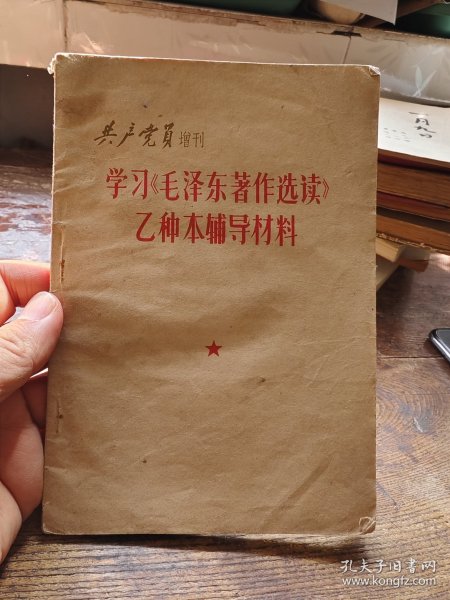 共产党員 增刊
学习《毛泽东著作选读》
乙种本辅导材料
孔夫子旧书网
www.kongfz.com